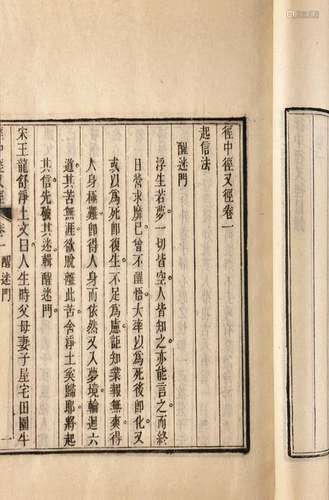 徑中徑又徑卷一
起信法
醒迷門
浮生若夢一切皆空人皆知之亦能言之而終
日營求靡已曾不醒悟大率以爲死後卽化又
或以爲死卽復生不足爲慮詎知業報無爽得
人身極難卽得人身而依然又入夢境輪迴六
道其苦無涯欲脫離此苦舍淨土奚歸耶將起
其信先破其迷輯醒迷門
宋王龍舒淨土文曰人生時父母妻子屋宅田園牛
徑中徑又徑 卷一 醒迷門 一